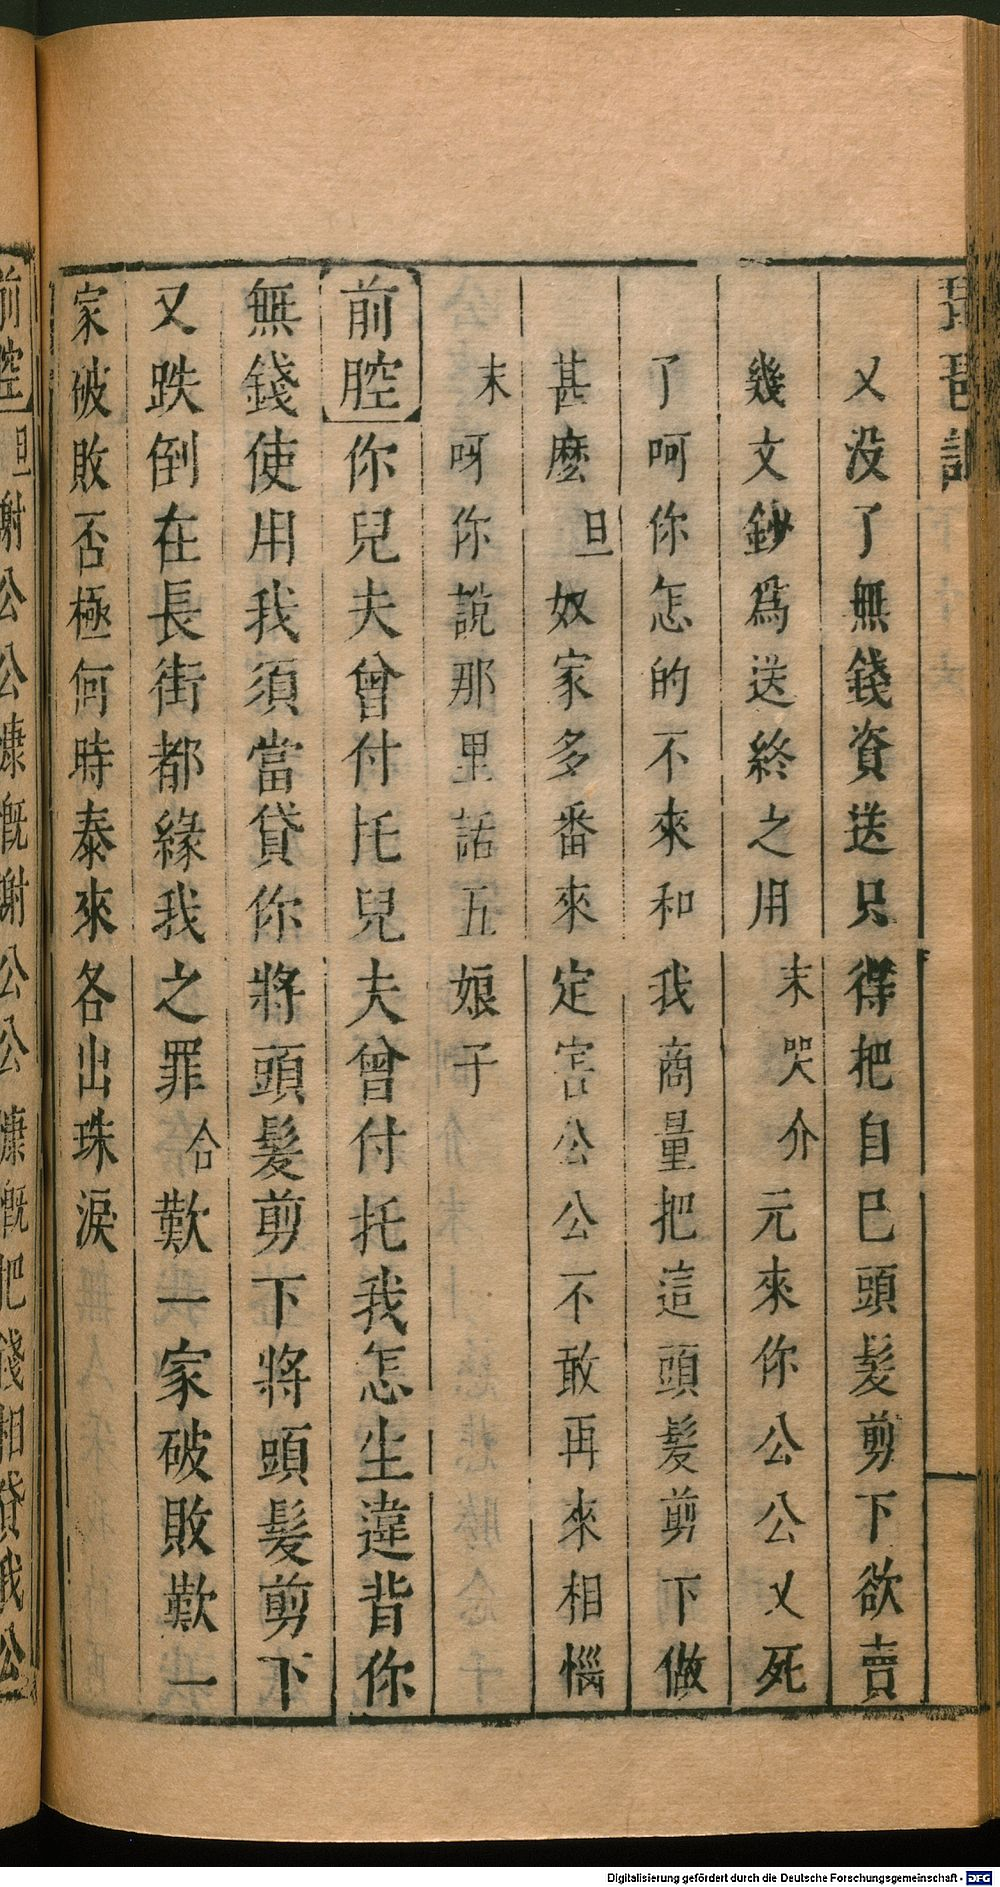 琵琶記
又没了無錢資送只得把自己頭髮剪下欲賣
幾文鈔爲送終之用末哭介元來你公公又死
了呵你怎的不來和我商量把這頭髮剪下做
甚麽旦奴家多番來定害公公不敢再來相惱
末呀你說那里話五娘子
前腔你兒夫曾付托兒夫曾付托我怎生違背你
無錢使用我須當貸你將頭髮剪下將頭髮剪下
又跌倒在長街都緣我之罪合歎一家破敗歎一
家破敗否極何時泰來各出珠淚
前腔旦謝公公慷慨謝公公慷慨把錢相貸我公
Digitalisierung gefördert durch die Deutsche Forschungsgemeinschaft - DFG